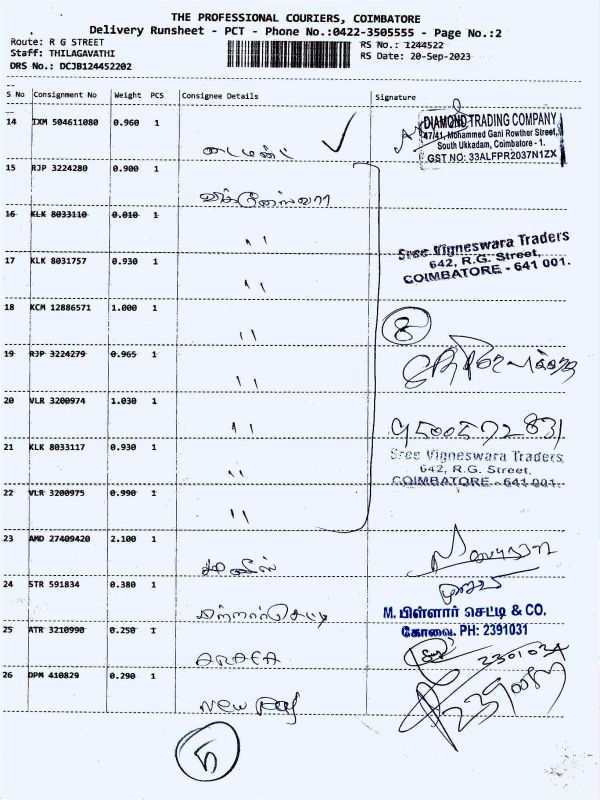 THE PROFESSIONAL COURIERS, COIMBATORE
Delivery Runsheet - PCT - Phone No.:0422-3505555 - Page No.:2
Route: R G STREET
Staff: THILAGAVATHI
DRS No.: DCJB124452202
RS No.: 1244522
RS Date: 20-Sep-2023
S No Consignment No Weight PCS Consignee Details Signature
14 IXM 504611080 0.960 1
டைமன்ட்
DIAMOND TRADING COMPANY
47/41, Mohammed Gani Rowther Street,
South Ukkadam, Coimbatore - 1.
GST NO: 33ALFPR2037N1ZX
15 RJP 3224280 0.900 1
விக்னேஸ்வரா
16 KLK 8033110 0.010 1
" 
Sree Vigneswara Traders
642, R.G. Street,
COIMBATORE - 641 001.
17 KLK 8031757 0.930 1
"
18 KCM 12886571 1.000 1
"
8
19 RJP 3224279 0.965 1
"
20 VLR 3200974 1.030 1
"
9500572831
21 KLK 8033117 0.930 1
"
Sree Vigneswara Traders
642, R.G. Street,
COIMBATORE - 641 001.
22 VLR 3200975 0.990 1
"
23 AMD 27409420 2.100 1
24 STR 591834 0.380 1
M. பிள்ளார் செட்டி & CO.
கோவை. PH: 2391031
25 ATR 3210990 0.250 1
2301034
26 DPM 410829 0.290 1
New
5